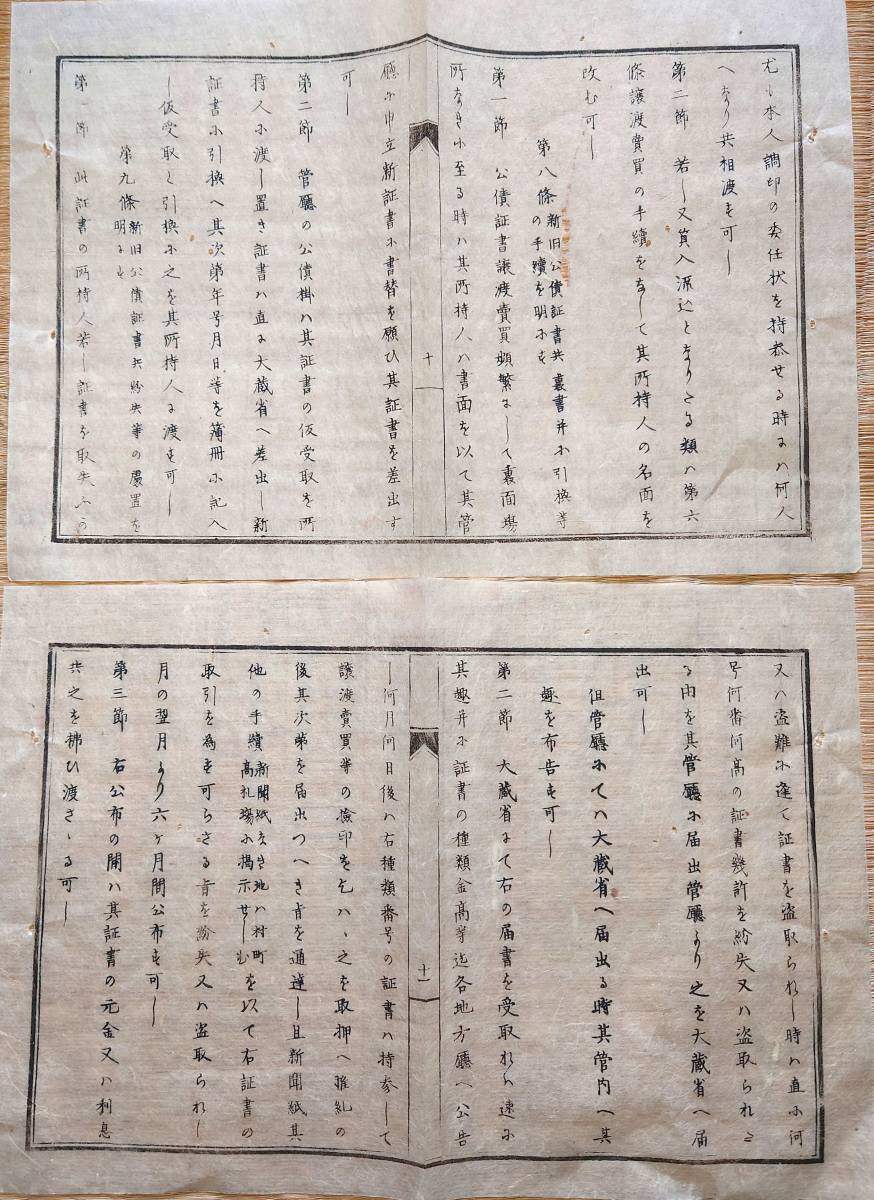 尤も本人調印の委任状を持参せる時ニハ何人
へなり共相渡す可し
第二節 若し又質入流込となりたる類ハ第六
條譲渡賣買の手續をなして其所持人の名面を
改む可し
第八條 新旧公債証書共裏書并ニ引換等
の手續を明にす
第一節 公債証書譲渡賣買頻繁にして裏面場
所なきに至る時ハ其所持人ハ書面を以て其管
十
廳に申立新証書に書替を願ひ其証書を差出す
可し
第二節 管廳の公債掛ハ其証書の仮受取を所
持人に渡し置き証書ハ直に大蔵省へ差出し新
証書に引換へ其次第年号月日等を簿冊に記へ
し仮受取と引換に之を其所持人に渡す可し
第九條 新旧公債証書共紛失等の處置を
明にす
第一節 此証書の所持人若し証書を取失ふか
又ハ盗難に逢て証書を盗取られし時ハ直に何
号何番何高の証書幾許を紛失又ハ盗取られた
る由を其管廳に届出管廳より之を大蔵省へ届
出可し
但管廳にてハ大蔵省へ届出る時其管内へ其
趣を布告す可し
第二節 大蔵省にて右の届書を受取れハ速に
其趣并に証書の種類金高等迄各地方廳へ公告
十一
し何月何日後ハ右種類番号の証書ハ持参して
譲渡賣買等の検印を乞ハヽ之を取押へ推糺の
後其次第を届出つへき旨を通達し且新聞紙其
他の手續 新聞紙なき地ハ村町
高札場に掲示せしむ を以て右証書の
取引を為す可らさる旨を紛失又ハ盗取られし
月の翌月より六ヶ月間公布す可し
第三節 右公布の間ハ其証書の元金又ハ利息
共之を拂ひ渡さゝる可し